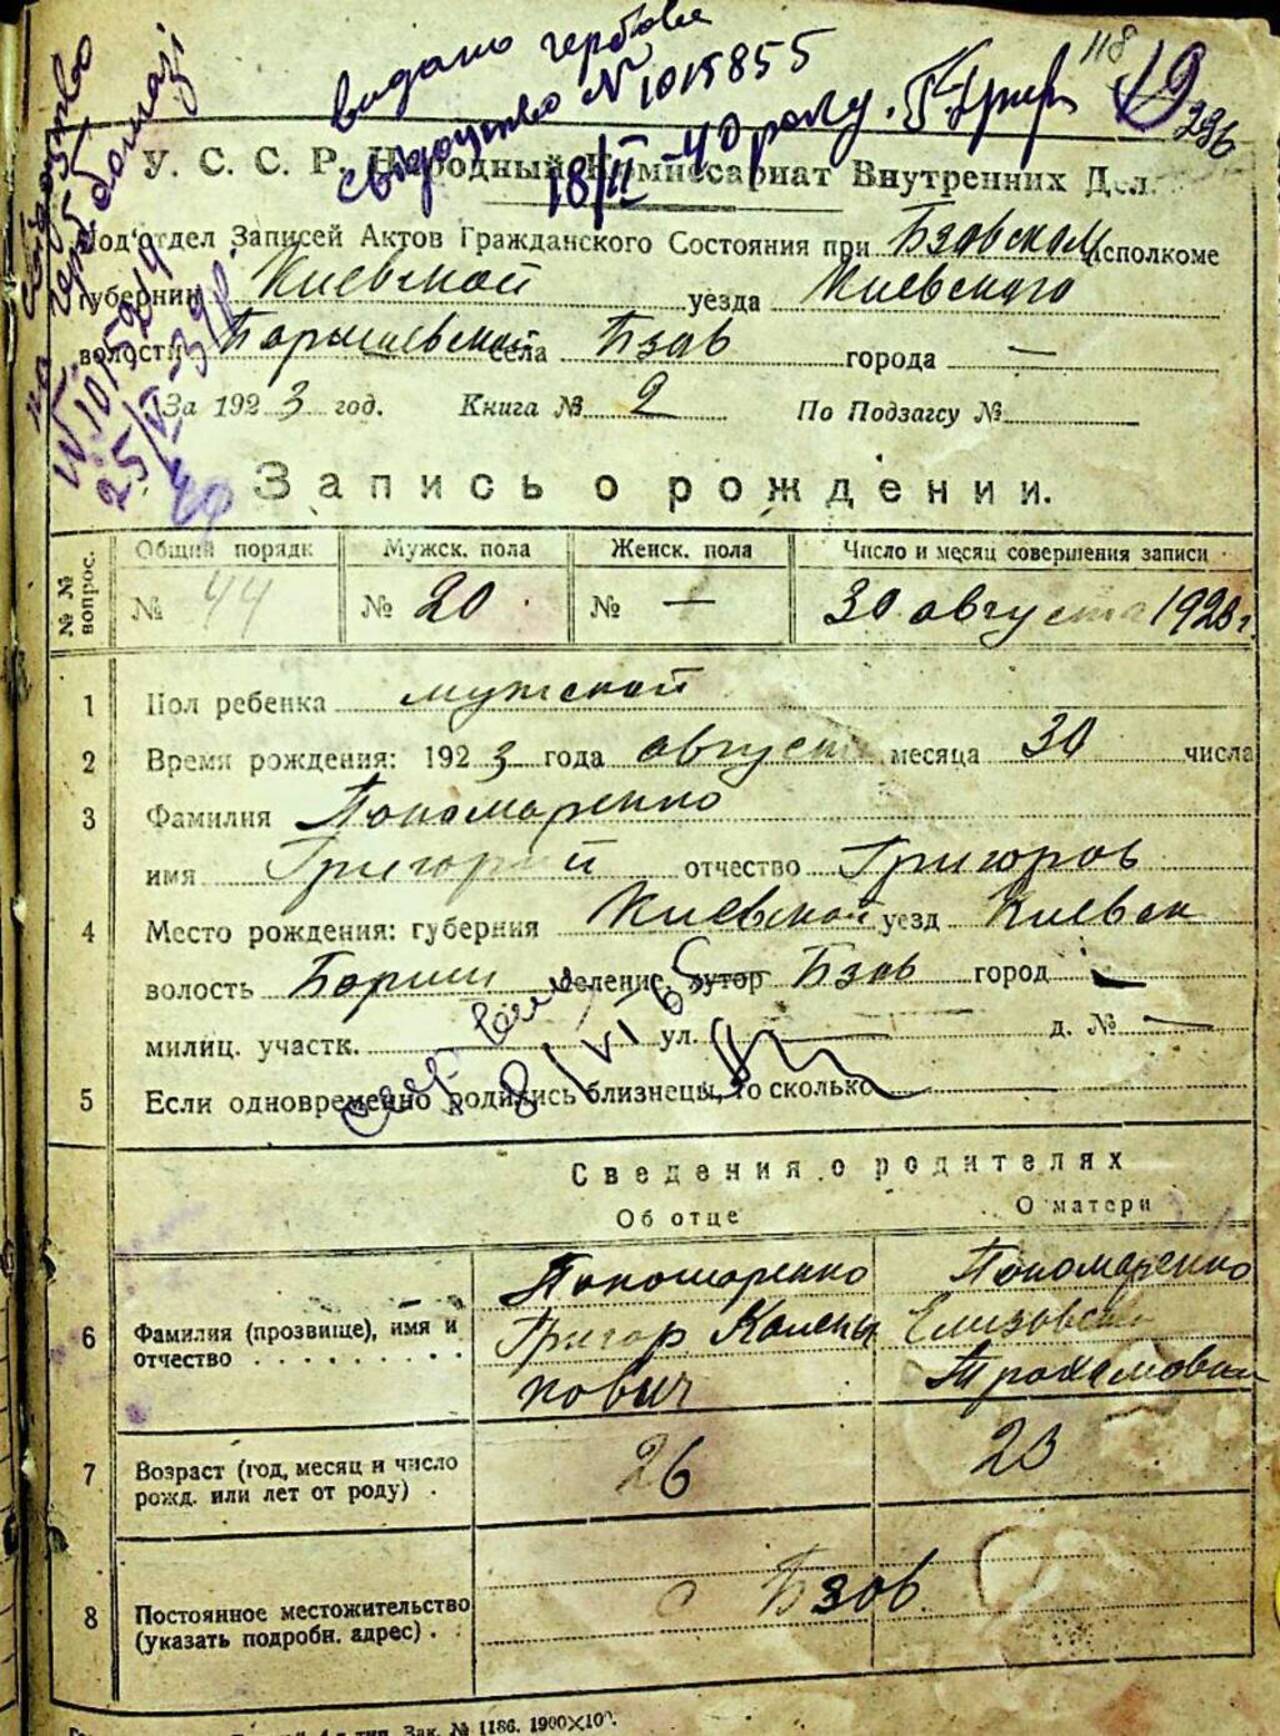 118
видано гербове
свідоцтво № 1015855
18/II – 40 року.
19
236
свідоцтво
на герб. бомазі
№ 101
25/VI–39 р.
У. С. С. Р. Народный Комиссариат Внутренних Дел.
Под'отдел Записей Актов Гражданского Состояния при Бзовском Исполкоме
губернии Киевской уезда Киевского
волости Барышевской села Бзов города —
За 1923 год. Книга № 2 По Подзагсу №
Запись о рождении.
№ № вопрос.
Общий порядк Мужск. пола Женск. пола Число и месяц совершения записи
№ 44 № 20 № — 30 августа 1923 г.
1 Пол ребенка мужской
2 Время рождения: 1923 года августа месяца 30 числа
3 Фамилия Пономаренко
имя Григорий отчество Григоров
4 Место рождения: губерния Киевской уезд Киевск
волость Бориш селение, хутор Бзов город —
милиц. участк. ул. — д. № —
8/VI–65
5 Если одновременно родились близнецы, то сколько —
Сведения о родителях
Об отце О матери
6 Фамилия (прозвище), имя и отчество
Пономаренко Григор Калени­кович
Пономаренко Елизовета Трохимовна
7 Возраст (год, месяц и число рожд. или лет от роду) 26 23
8 Постоянное местожительство (указать подробн. адрес) с Бзов
тип. Зак. № 1186. 1900×10⁰.